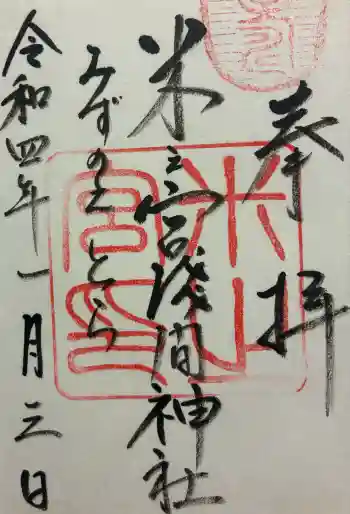 奉拝
米之宮浅間神社
みずのえとら
令和四年一月三日
米之
宮印